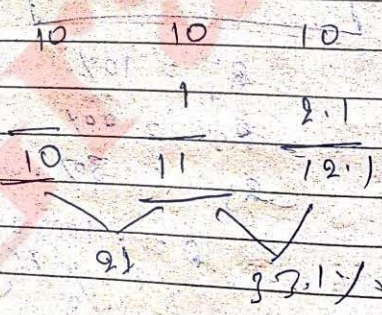 10 10 10
1 2.1
10 11 12.1
21 33.1%